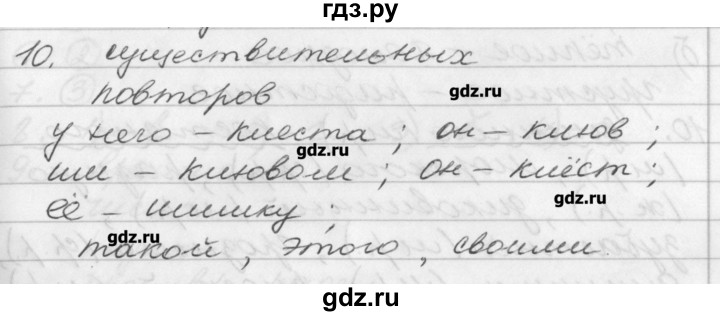 гдз.ру
10. существительных
повторов
gdz.ru
у него – клеста; он – клюв;
gdz.ru
им – клювом; он – клёст;
gdz.ru
её – шишку;
gdz.ru
такой, этого, своими
gdz.ru